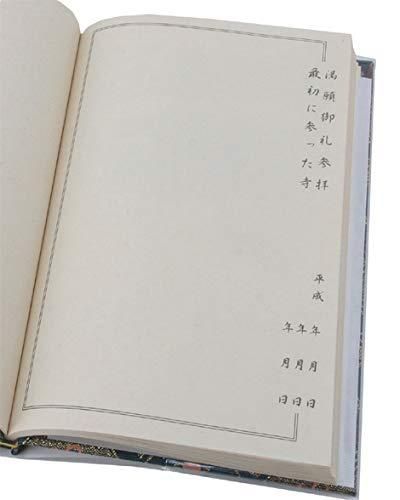 満願御礼参拝
最初に参った寺
平成 年 月 日
年 月 日
年 月 日